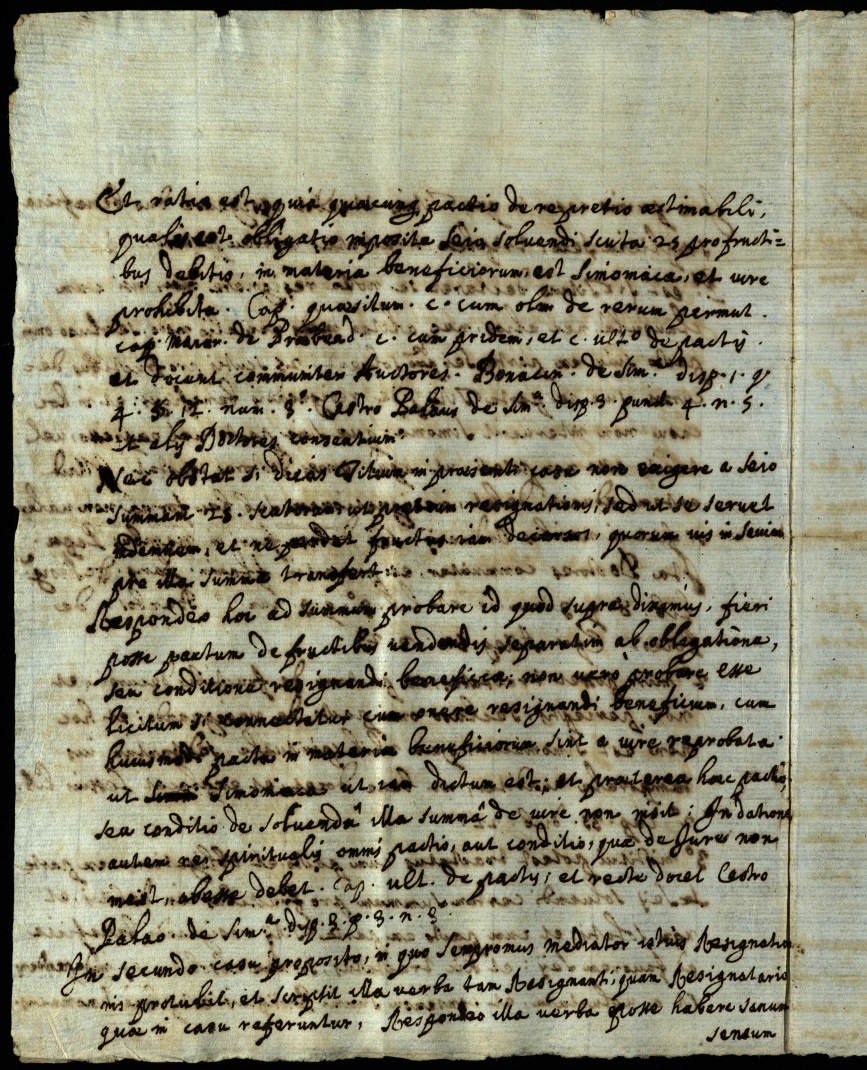 Et ratio est, quia quæcunq pactio de re pretio æstimabili,
qualis est obligatio imposita Seio soluendi scuta 25 pro fructi=
bus debitis, in materia beneficiorum, est simoniaca, et iure
prohibita. Cap. quæsitum. c. cum olim de rerum permut.
cap. Maior. de Præbend. c. cum pridem, et c. ult.º de pactis.
et docent communiter Auctores. Bonacin. de Sim.ª disp. 1. q
4. §. 12. num. 3º. Castro Palaus de Sim.ª disp 3. punct. 4. n. 5.
et alij Doctores consentiunt.
Nec obstat si dicas Titium in præsenti casu non exigere a Seio
summam 25. scutorum ut pretium resignationis, sed ut se seruet
indemnem, et ne perdat fructus iam decursos, quorum ius in Seium
pre illa summa transfert.
Respondeo hoc ad summum probare id quod supra diximus, fieri
posse pactum de fructibus uendendis separatim ab obligatione,
seu conditione resignandi beneficia, non uero probare esse
licitum si connectatur cum onere resignandi beneficium, cum
huiusmodi pacta in materia beneficiorum sint a iure reprobata
ut simoniaca ut iam dictum est; et præterea hoc pactu,
seu conditio de soluenda illa summa de iure non inest: In datione
autem rei spiritualis omnis pactio, aut conditio, quæ de Jure non
inest, abesse debet. Cap. ult. de pactis, et recte docet Castro
Palao. de Sim.ª disp. 3. p. 3. n. 3.
In secundo casu proposito, in quo Sempronius mediator istius Resignatio
nis protulit, et scripsit illa uerba tam Resignanti, quam Resignatario
quæ in casu referuntur, Respondeo illa uerba posse habere sanum
sensum